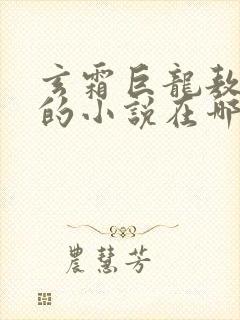 玄霜巨龍敖
的小說在哪
農慧芳